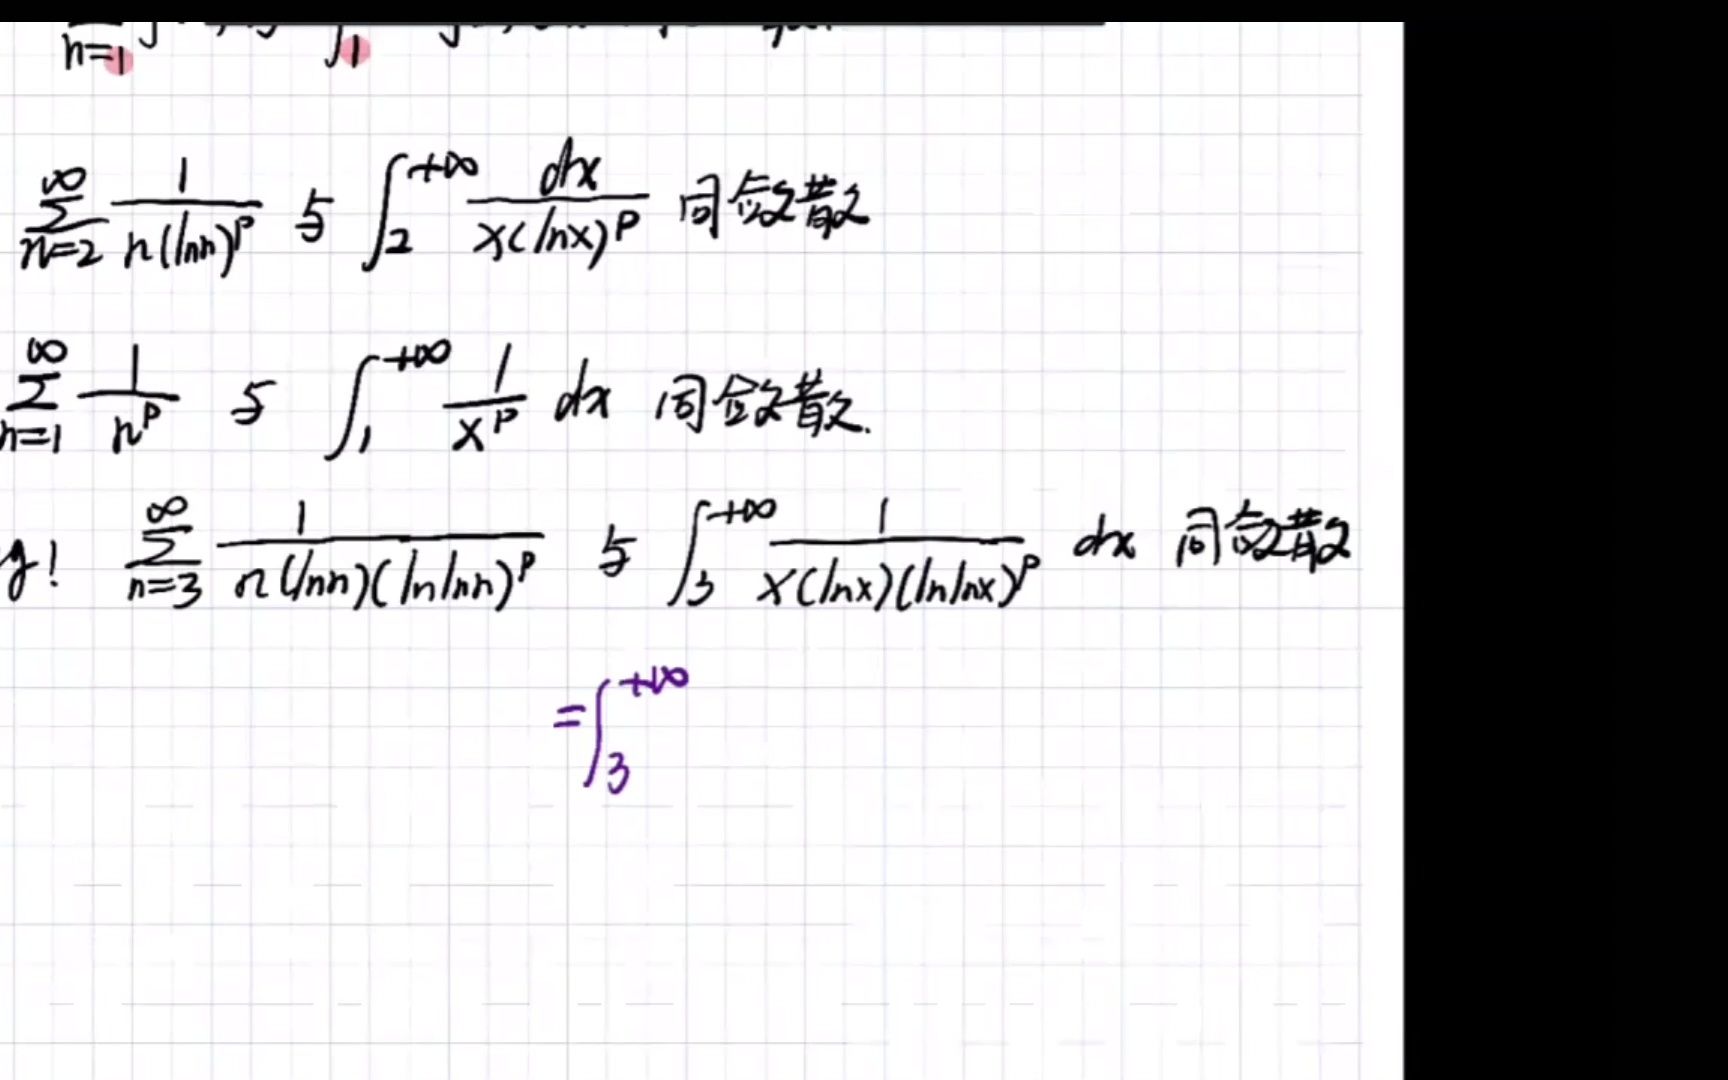 n=1 ∫1
∑_{n=2}^{∞} 1/(n(lnn)^p) 与 ∫_2^{+∞} dx/(x(lnx)^p) 同敛散
∑_{n=1}^{∞} 1/n^p 与 ∫_1^{+∞} 1/x^p dx 同敛散.
g! ∑_{n=3}^{∞} 1/(n(lnn)(lnlnn)^p) 与 ∫_3^{+∞} 1/(x(lnx)(lnlnx)^p) dx 同敛散
=∫_3^{+∞}